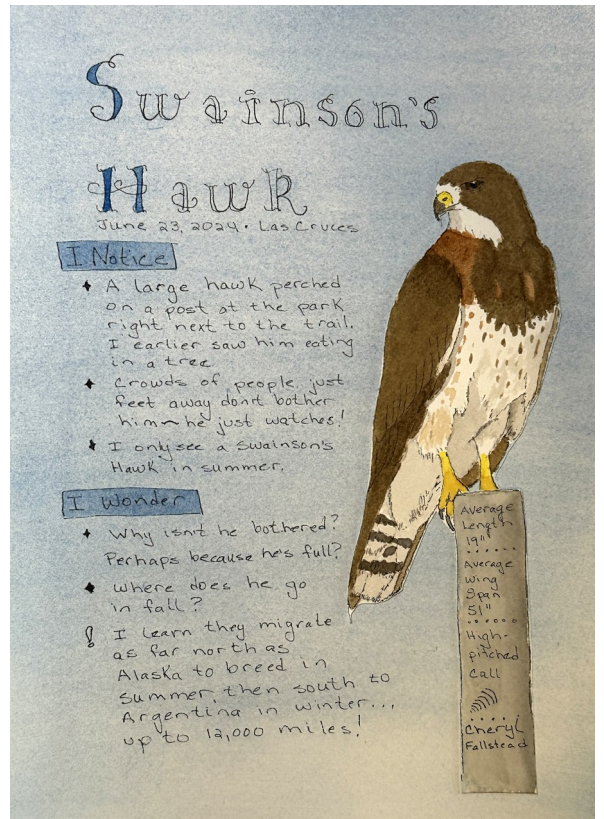 Swainson's
Hawk
June 23, 2024 • Las Cruces
I Notice
A large hawk perched
on a post at the park
right next to the trail.
I earlier saw him eating
in a tree
Crowds of people just
feet away don't bother
him~he just watches!
I only see a Swainson's
Hawk in summer.
I Wonder
Why isn't he bothered?
Perhaps because he's full?
Where does he go
in fall?
! I learn they migrate
as far north as
Alaska to breed in
summer, then south to
Argentina in winter...
up to 12,000 miles!
Average
Length
19"
Average
Wing
Span
51"
High-
pitched
Call
Cheryl
Fallstead